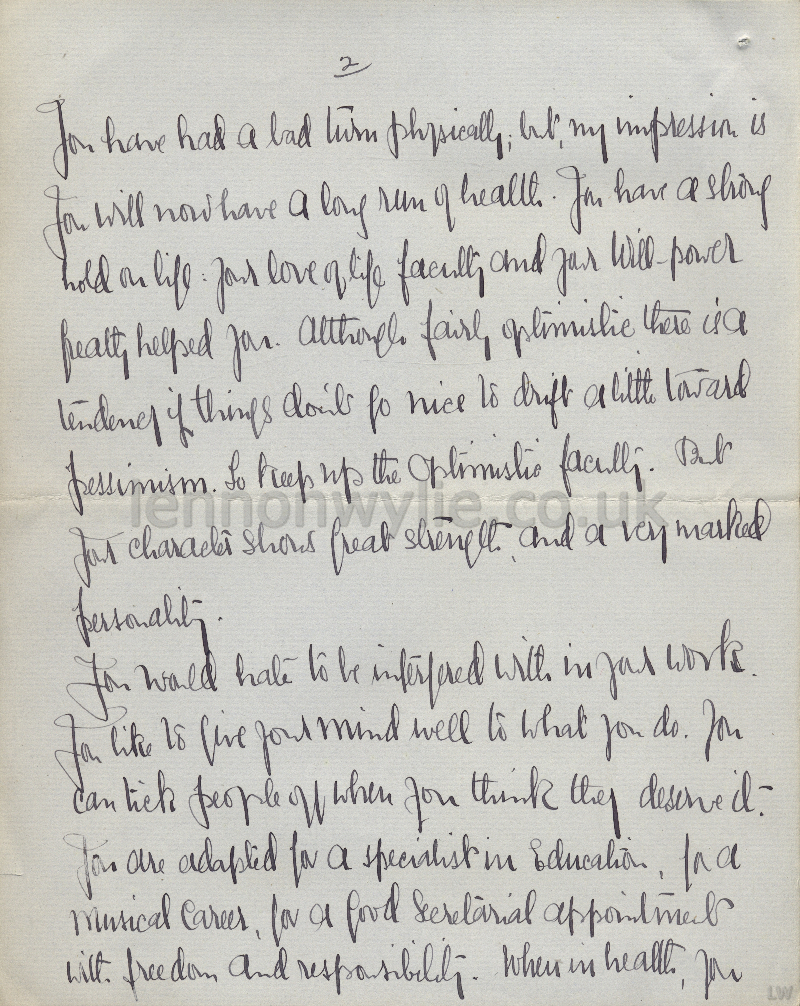 2
You have had a bad turn physically, but, my impression is
You will now have a long run of health. You have a strong
hold on life: your love of life faculty and your Will-power
greatly helped you. Although fairly optimistic there is a
tendency if things don't go nice to drift a little toward
pessimism. So keep up the Optimistic faculty. But
lennonwylie.co.uk
your character shows great strength, and a very marked
personality.
You would hate to be interfered with in your work.
You like to give your mind well to what you do. You
can tick people off when you think they deserve it.-
You are adapted for a specialist in Education, for a
Musical Career, for a Good Secretarial appointment
with freedom and responsibility. When in health, you
LW